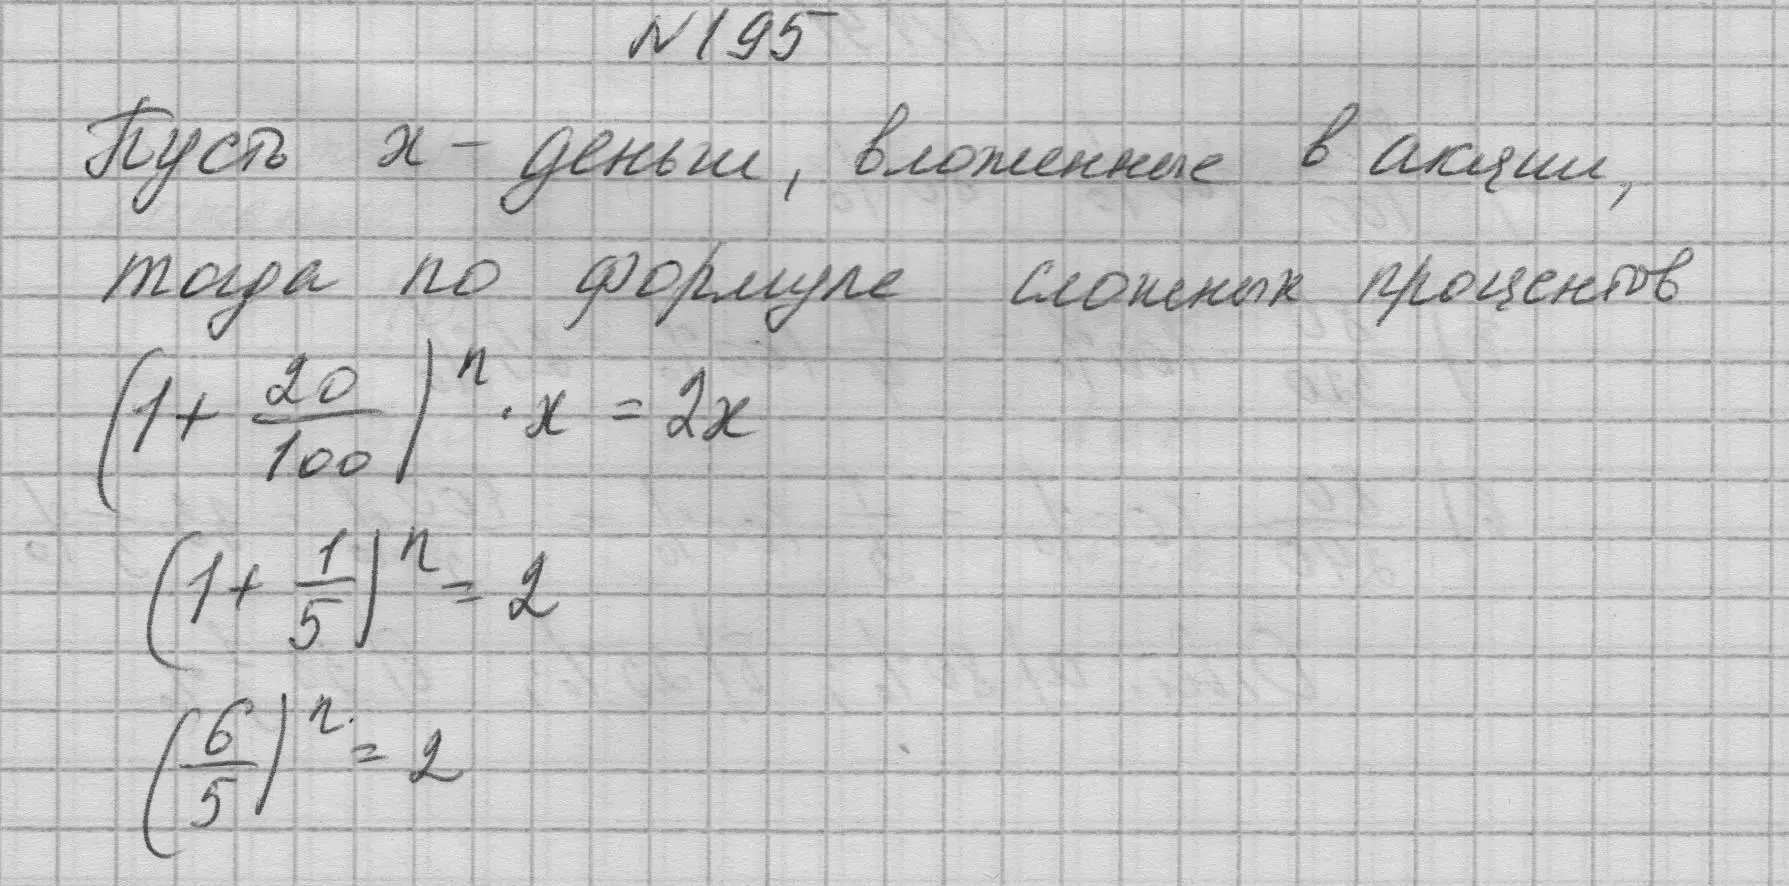 №195
Пусть x - деньги, вложенные в акции,
тогда по формуле сложных процентов
(1 + 20/100)^n · x = 2x
(1 + 1/5)^n = 2
(6/5)^n = 2